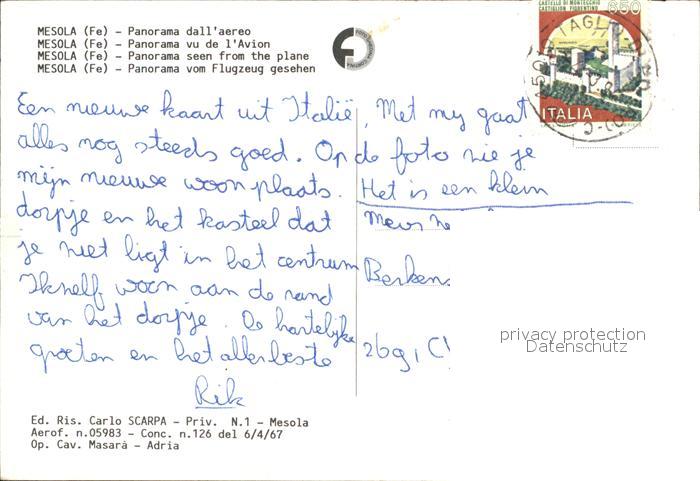 MESOLA (Fe) – Panorama dall'aereo
MESOLA (Fe) – Panorama vu de l'Avion
MESOLA (Fe) – Panorama seen from the plane
MESOLA (Fe) – Panorama vom Flugzeug gesehen
CASTELLO DI MONTECCHIO
CASTIGLION FIORENTINO
650
ITALIA
Een nieuwe kaart uit Italië, Met my gaat
alles nog steeds goed. Op de foto zie je
mijn nieuwe woonplaats. Het is een klein
dorpje en het kasteel dat
je ziet ligt in het centrum
Ikzelf woon aan de rand
van het dorpje. De hartelijke
groeten en het allerbeste
Rik
Berken
privacy protection
Datenschutz
Ed. Ris. Carlo SCARPA – Priv. N.1 – Mesola
Aerof. n.05983 – Conc. n.126 del 6/4/67
Op. Cav. Masarà – Adria